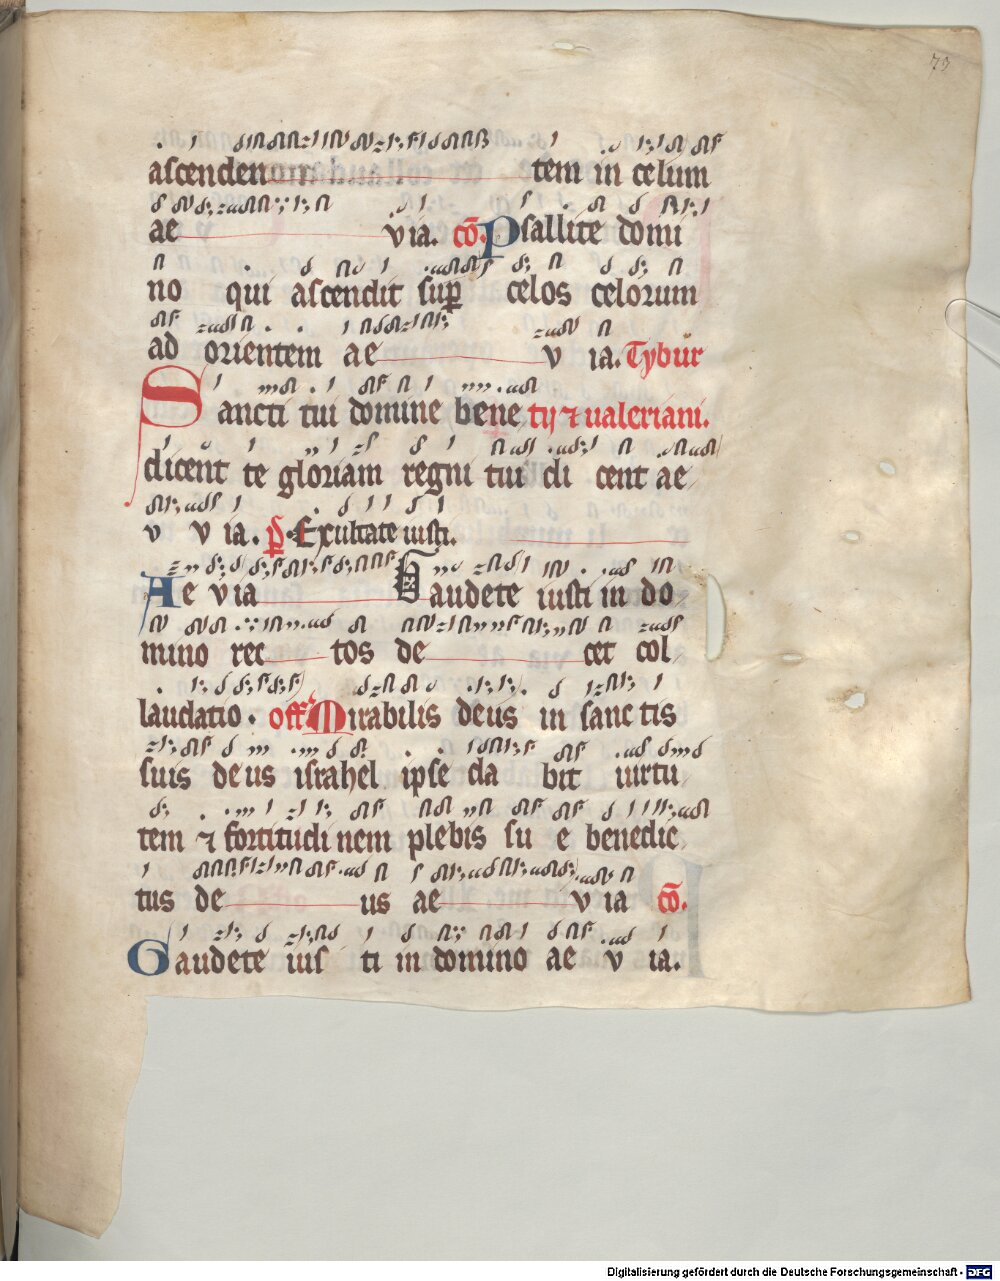 73
ascenden tem in celum
ae via. cō. Psallite domi
no qui ascendit sup celos celorum
ad orientem ae v ia. Tybur
Sancti tui domine bene tij ⁊ ualeriani.
dicent te gloriam regni tui di cent ae
v v ia. p̄s. Exultate iusti.
Ae via Gaudete iusti in do
mino rec tos de cet col
laudatio. off Mirabilis deus in sanc tis
suis deus israhel ipse da bit uirtu
tem ⁊ fortitudinem plebis su e benedic
tus de us ae v ia cō.
Gaudete ius ti in domino ae v ia.
Digitalisierung gefördert durch die Deutsche Forschungsgemeinschaft - DFG